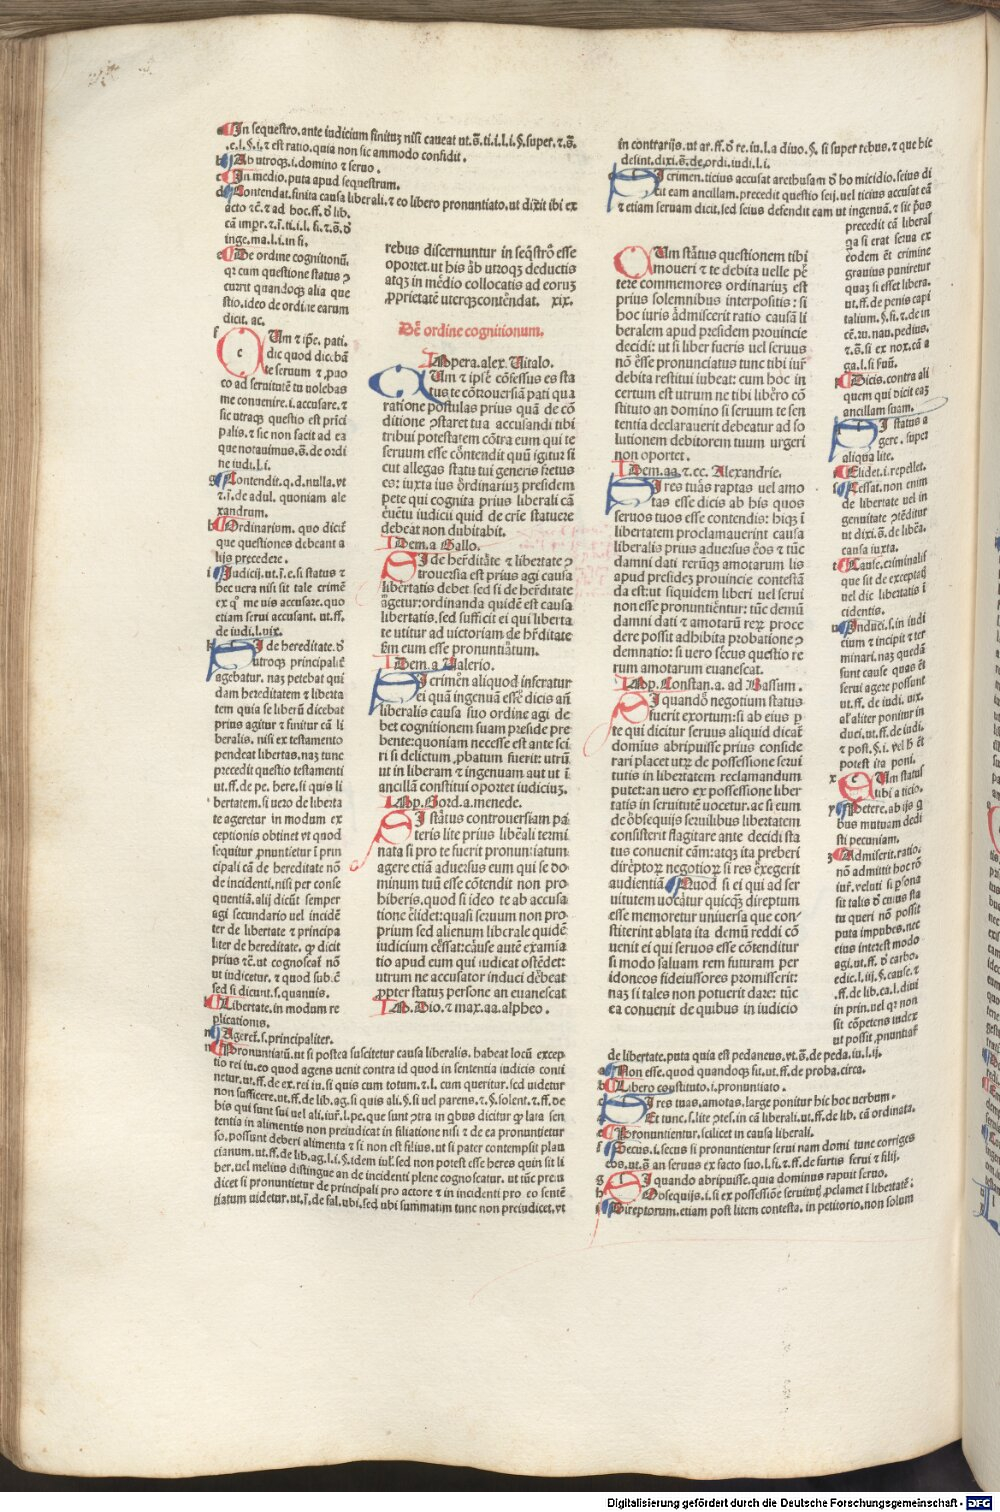 In sequestro. ante iudicium finituʒ nisi caueat ut. s̄. ti. i. l. i. §. super. ⁊. s̄.
e. l. §. i. ⁊ est ratio. quia non sic ammodo confidit.
Ab utroqꝫ. i. domino ⁊ seruo.
In medio. puta apud sequestrum.
Contendat. finita causa liberali. ⁊ eo libero pronuntiato. ut dixit ibi ex
De ordine cognitionuꝫ.
qꝛ cum questione status
currit quandoqꝫ alia que
stio. ideo de ordine earum
dicit. ac.
dic quod dic. bā
te seruum ⁊
co ad seruitutē tu uolebas
me conuenire. i. accusare. ⁊
sic utraqꝫ questio est prīci
palis. ⁊ sic non facit ad ea
que notauimus. s̄. de ordi
ne iudi. l. i.
Contendit. q. d. nulla. vt
⁊. ī. de adul. quoniam ale
xandrum.
Ordinarivm. quo dicit
que questiones debeant a
lijs precedere.
Iudicij. ut. ī. e. si status ⁊
hec uera nisi sit tale crimē
etiam serui accusant. ut. ff.
de iudi. l. vix.
SI de hereditate. ꝺ
utroqꝫ principalit̄
agebatur. naꝫ petebat qui
dam hereditatem ⁊ liberta
tem quia se liberū dicebat
prius agitur ⁊ finitur cā li
beralis. nisi ex testamento
pendeat libertas. naꝫ tunc
precedit questio testamenti
ut. ff. de pe. here. si quis li
bertatem. si uero de liberta
te ageretur in modum ex
ceptionis obtinet vt quod
sequitur ꝓnuntietur ī prin
cipali cā de hereditate nō
de incidenti. nisi per conse
quentiā. alij dicūt semper
agi secundario uel incidē
ter de libertate ⁊ principa
liter de hereditate. qꝫ dicit
prius ⁊c̄. ut cognoscat̄ nō
ut iudicetur. ⁊ quod sub. c̄
sed si dicunt. s. quamuis.
Libertate. in modum re
plicationis.
Ageret. s. principaliter.
Pronuntiatū. ut si postea suscitetur causa liberalis. habeat locū excep
tio rei iu. eo quod agens uenit contra id quod in sententia iudicis conti
netur. ut. ff. de ex. rei iu. si quis cum totum. ⁊. l. cum queritur. sed uidetur
non sufficere. ut. ff. de lib. ag. si quis ali. §. si uel parens. ⁊. §. solent. ⁊. ff. de
tentia in alimentis non preiudicat in filiatione nisi ⁊ de ea pronuntietur
so. possunt deberi alimenta ⁊ si non est filius. ut si pater contempsit plau
cianum. ut. ff. de lib. ag. l. i. §. idem iul. sed non potest esse heres quin sit li
ber. uel melius distingue an de incidenti plene cognoscatur. ut tūc preiu
dicet si pronuntietur de principali pro actore ⁊ in incidenti pro eo sentē
tiatum uidetur. ut. ī. de fal. ubi. sed ubi summatim tunc non preiudicet. vt
rebus discernuntur in seqstrō esse
oportet. ut his ab utroqꝫ deductis
atqꝫ in medio collocatis ad eoruꝫ
ꝓprietatē uterqꝫ contendat. xix.
De ordine cognitionum.
Impera. alex. Uitalo.
CUm ⁊ ipse cōfessus es sta
tus te cōtrouersiā pati qua
ratione postulas prius quā de cō
ditione ꝯstaret tua accusandi tibi
tribui potestatem cōtra eum qui te
seruum esse cōntendit quū igitur si
cut allegas statu tui generis fretus
es: iuxta ius ordinarivꝫ presidem
pete qui cognita prius liberali cā
euētu iudicii quid de crīe statuere
debeat non dubitabit.
IDem. a Gallo.
SI de herditate ⁊ libertate ꝯ
trouersia est prius agi causa
libertatis debet. sed si de herditate
agetur: ordinanda quidē est causa
libertatis. sed sufficit ei qui liberta
te utitur ad uictoriam de hrditate
s̄m eum esse pronuntiatum.
IDem. a Valerio.
SI crimen aliquod inferatur
ei quā ingenuā esse dicis an
liberalis causa suo ordine agi de
bet cognitionem suam preside pre
bente: quoniam necesse est ante sci
ri si delictum ꝓbatum fuerit: utrū
ut in liberam ⁊ ingenuam aut ut ī
ancillā constitui oportet iudiciuꝫ.
Imp. Gord. a. menede.
SI status controuersiam pa
teris lite prius liberali termi
nata si pro te fuerit pronuntiatum
agere etiā aduersus eum qui se do
minum tuū esse cōtendit non pro
hiberis. quod si ideo te ab accusa
tione elidet: quasi seruum non pro
prium sed alienum liberale quidē
iudicium cessat: cause autē examia
tio apud eum qui iudicat ostēdet:
utrum ne accusator induci debeat
ꝓpter statuꝫ persone an euanescat
Im. Dio. ⁊ max. aa. alpheo.
CUm status questionem tibi
moueri ⁊ te debita uelle pe
tere commemores ordinarivꝫ est
prius solemnibus interpositis: si
hoc iuris admiserit ratio causā li
beralem apud presidem prouincie
decidi: ut si liber fueris vel seruus
nō esse pronunciatus tunc tibi iur̄
debita restitui iubeat: cum hoc in
certum est utrum ne tibi libero cō
stituto an domino si seruum te sen
tentia declarauerit debeatur ad so
lutionem debitorem tuum urgeri
non oportet.
IDem. aa. ⁊. cc. Alexandrie.
SI res tuas raptas uel amo
tas esse dicis ab his quos
seruos tuos esse contendis: hiqꝫ ī
libertatem proclamauerint causa
liberalis prius aduersus eos ⁊ tūc
damni dati reruꝫqꝫ amotarum lis
apud presideꝫ prouincie contestā
da est: ut siquidem liberi uel serui
non esse pronuntientur: tūc demū
damni dati ⁊ amotarū reꝝ proce
dere possit adhibita probatione ꝯ
demnatio: si uero secus questio re
rum amotarum euanescat.
Imp. Constan. a. ad Bassum.
SI quando negotium status
fuerit exortum: si ab eius ꝑ
te qui dicitur seruus aliquid dicat̄
domius abripuisse prius conside
rari placet utꝝ de possessione serui
tutis in libertatem reclamandum
putet: an uero ex possessione liber
tatis in seruitutē uocetur. ac si eum
de obsequijs seruilibus libertatem
consisterit flagitare ante decidi sta
tus conuenit cām: atqꝫ ita preberi
direptoꝝ negotioꝝ si res exegerit
audientiā. Quod si ei qui ad ser
uitutem uocatur quicqꝫ direptum
esse memoretur uniuersa que con-
stiterint ablata ita demū reddi cō
uenit ei qui seruos esse cōtenditur
si modo saluam rem futuram per
idoneos fideiussores promisserit:
naꝫ si tales non potuerit dare: tūc
ea conuenit de quibus in iudicio
in contrarijs. ut ar. ff. ꝺ re. iu. l. a diuo. §. si super rebus. ⁊ que hic
desint. dixi. s̄. de. ordi. iudi. l. i.
SI crimen. ticius accusat arethusam ꝺ homicidio. seius di
cit eam ancillam. precedit questio seij. uel ticius accusat eā
⁊ etiam seruam dicit. sed seius defendit eam ut ingenuā. ⁊ sic prius
precedit cā liberał
ga si erat serua ex
eodem ēt crimine
grauius puniretur
quaꝫ si esset libera.
ut. ff. de penis capi
talium. §. fi. ⁊. de in
Dicis. contra ali
quem qui dicit eaꝫ
ancillam suam.
SI status a
gere. super
aliqua lite.
Elidet. i. repellet.
Cessat. non enim
de libertate uel in
genuitate ꝯtēditur
ut dixi. s̄. de libēa.
causa iuxta.
Cause. criminalis
que sit de exceptaꝫ
uel dic libertatis ī
cidentis.
Induci. s. in iudi
cium ⁊ incipit ⁊ ter
minari. naꝫ quedā
sunt cause quas ēt
serui agere possunt
ut. ff. de iudi. uix.
al' aliter ponitur in
duci. ut. ff. de iudi.
⁊ post. §. i. vel hꝫ ēt
potest ita poni.
CUm status
tibi a ticio.
Petere. ab ijs q̄
bus mutuam dedi
sti pecuniam.
Admiserit. ratio.
nō admittit hoc rō
iur̄. veluti si ꝑsona
sit talis ꝺ cuius sta
tu queri nō possit
puta impubes. nec
eius interest modo
agi. ut. ff. ꝺ carbo.
edic. l. iij. §. cause. ⁊
ff. de lib. ca. l. diui
in prin. uel qꝛ non
sit cōpetens iudex
ut possit ꝓnuntiař
de libertate. puta quia est pedaneus. vt. s̄. de peda. iu. l. ij.
Non esse. quod quandoqꝫ fit. ut. ff. de proba. circa.
Libero constituto. i. pronuntiato.
SI res tuas. amotas. large ponitur hic hoc uerbum.
Et tunc. s. lite ꝯtes. in cā liberali. ut. ff. de lib. cā ordinata.
Pronuntientur. scilicet in causa liberali.
Secus. i. secus si pronuntientur serui nam domi tunc corriges
eos. ut. s̄. an seruus ex facto suo. l. fi. ⁊. ff. de furtis serui ⁊ filij.
SI quando abripuisse. quia dominus rapuit seruo.
Obsequijs. i. si ex possessiōe seruitut̄ ꝓclamet ī libertatē:
Direptorum. etiam post litem contesta. in petitorio. non solum
Digitalisierung gefördert durch die Deutsche Forschungsgemeinschaft - DFG